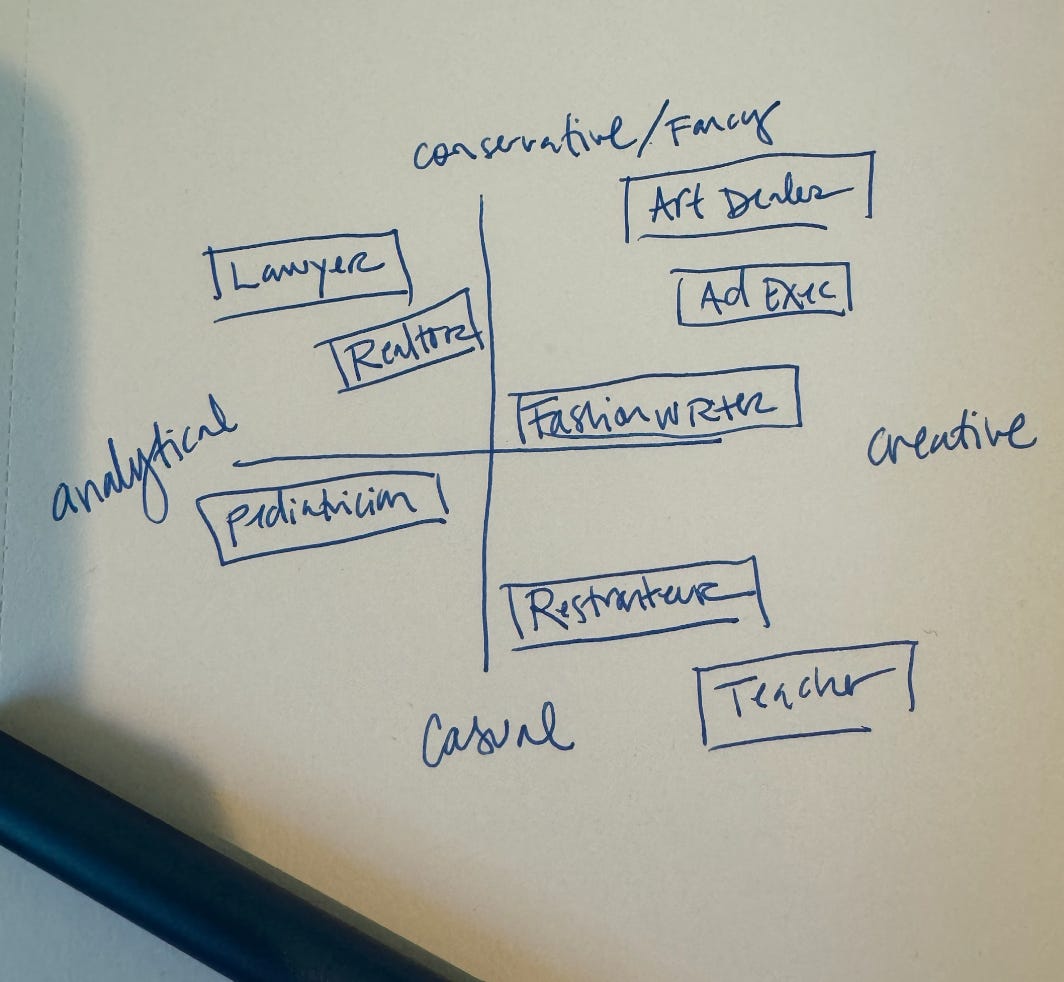 conservative/Fancy
Art Dealer
Lawyer
Ad Exec
Realtor
Fashion Writer
analytical
creative
pediatrician
Restranteur
Teacher
Casual